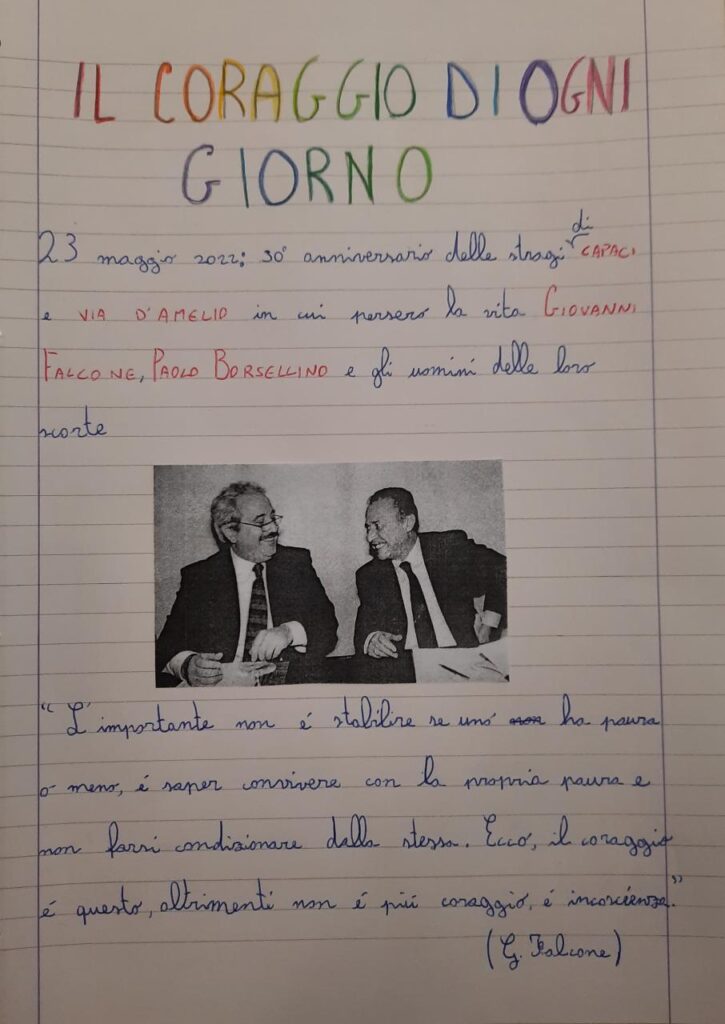 IL CORAGGIO DI OGNI
GIORNO
23 maggio 2022: 30° anniversario delle stragi di CAPACI
e VIA D'AMELIO in cui persero la vita GIOVANNI
FALCONE, PAOLO BORSELLINO e gli uomini delle loro
scorte
"L'importante non é stabilire se uno non ha paura
o meno, é saper convivere con la propria paura e
non farsi condizionare dalla stessa. Ecco, il coraggio
é questo, altrimenti non é piú coraggio, é incoscienza."
(G. Falcone)